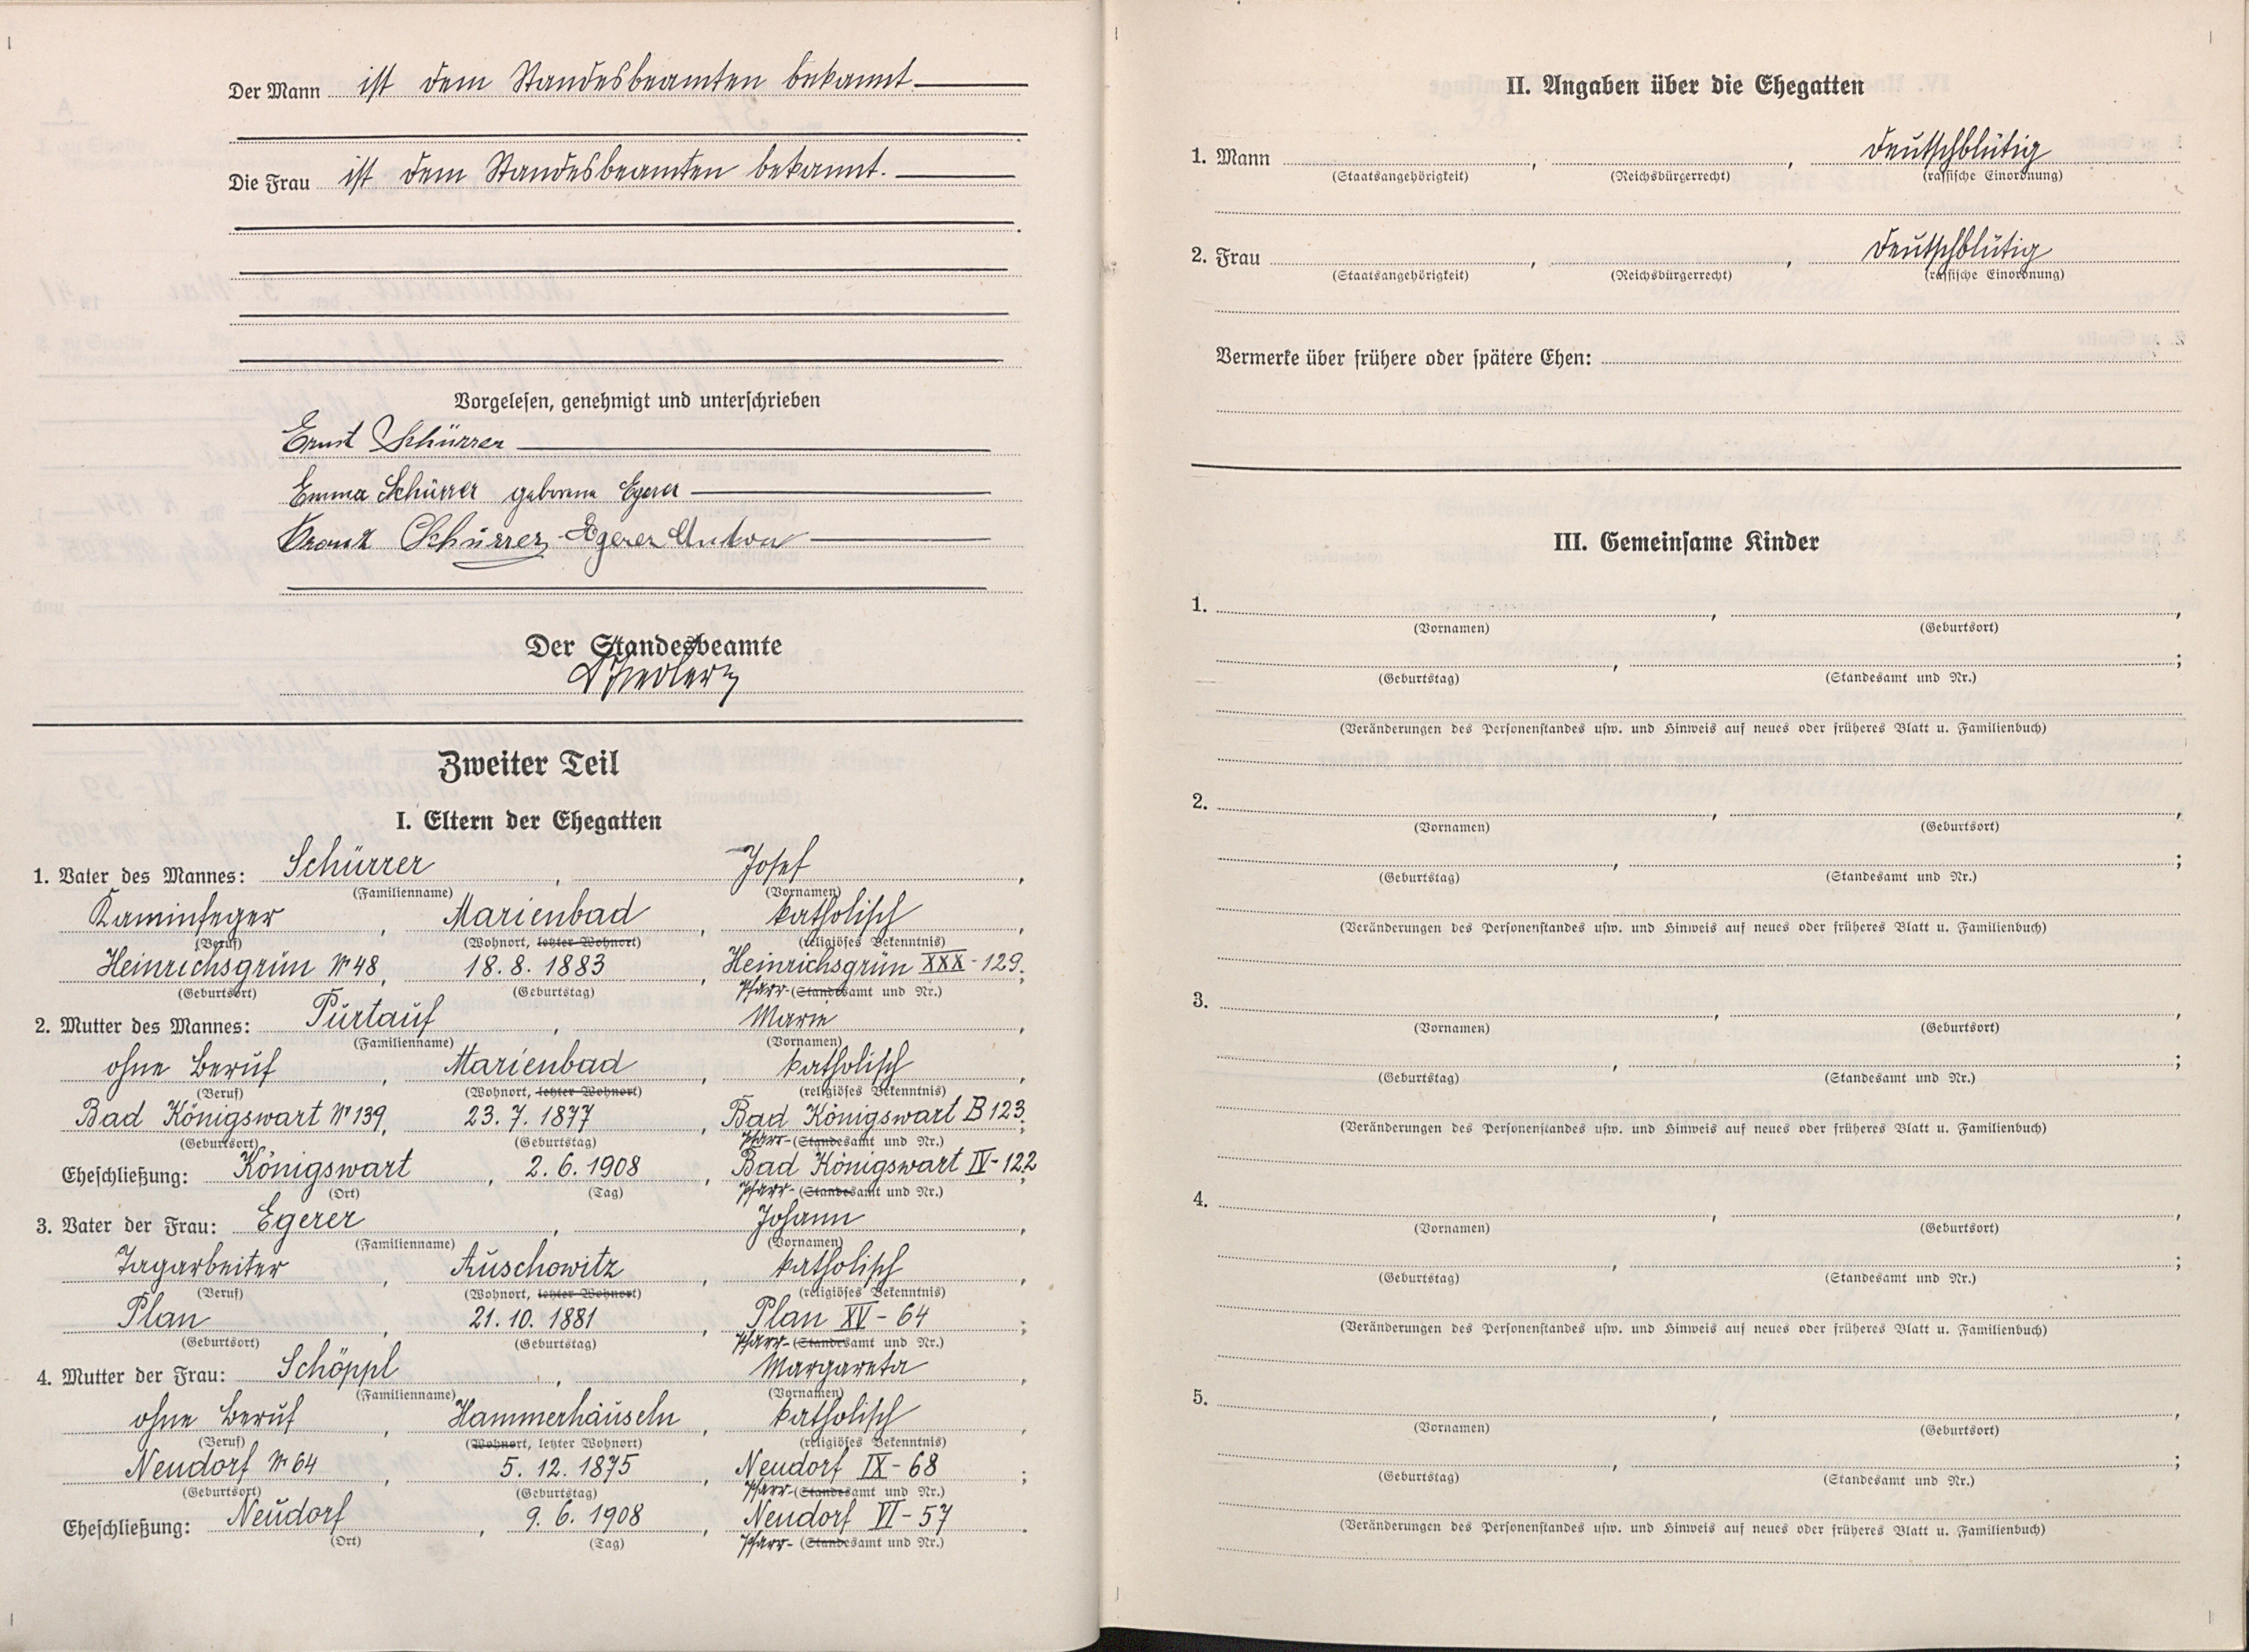 Der Mann ist dem Standesbeamten bekannt.
Die Frau ist dem Standesbeamten bekannt.
Vorgelesen, genehmigt und unterschrieben
Ernst Schürrer
Emma Schürrer geborene Egerer
Franz Schürrer, Egerer Anton
Der Standesbeamte
Zweiter Teil
I. Eltern der Ehegatten
1. Vater des Mannes: Schürrer, Josef,
(Familienname) (Vornamen)
Kaminfeger, Marienbad, katholisch,
(Beruf) (Wohnort, letzter Wohnort) (religiöses Bekenntnis)
Heinrichsgrün Nr 48, 18. 8. 1883, Heinrichsgrün XXX - 129;
(Geburtsort) (Geburtstag) Pfarr- (Standesamt und Nr.)
2. Mutter des Mannes: Purtauf, Marie,
(Familienname) (Vornamen)
ohne Beruf, Marienbad, katholisch,
(Beruf) (Wohnort, letzter Wohnort) (religiöses Bekenntnis)
Bad Königswart Nr 139, 23. 7. 1877, Bad Königswart B 123;
(Geburtsort) (Geburtstag) Pfarr- (Standesamt und Nr.)
Eheschließung: Königswart, 2. 6. 1908, Bad Königswart IV - 122;
(Ort) (Tag) Pfarr- (Standesamt und Nr.)
3. Vater der Frau: Egerer, Johann,
(Familienname) (Vornamen)
Tagarbeiter, Auschowitz, katholisch,
(Beruf) (Wohnort, letzter Wohnort) (religiöses Bekenntnis)
Plan, 21. 10. 1881, Plan XV - 64;
(Geburtsort) (Geburtstag) Pfarr- (Standesamt und Nr.)
4. Mutter der Frau: Schöppl, Margareta,
(Familienname) (Vornamen)
ohne Beruf, Hammerhäuseln, katholisch,
(Beruf) (Wohnort, letzter Wohnort) (religiöses Bekenntnis)
Neudorf Nr 64, 5. 12. 1875, Neudorf IX - 68;
(Geburtsort) (Geburtstag) Pfarr- (Standesamt und Nr.)
Eheschließung: Neudorf, 9. 6. 1908, Neudorf VI - 57.
(Ort) (Tag) Pfarr- (Standesamt und Nr.)
II. Angaben über die Ehegatten
1. Mann , , deutschblütig
(Staatsangehörigkeit) (Reichsbürgerrecht) (rassische Einordnung)
2. Frau , , deutschblütig
(Staatsangehörigkeit) (Reichsbürgerrecht) (rassische Einordnung)
Vermerke über frühere oder spätere Ehen:
III. Gemeinsame Kinder
1. , ,
(Vornamen) (Geburtsort)
, ;
(Geburtstag) (Standesamt und Nr.)
(Veränderungen des Personenstandes usw. und Hinweis auf neues oder früheres Blatt u. Familienbuch)
2. , ,
(Vornamen) (Geburtsort)
, ;
(Geburtstag) (Standesamt und Nr.)
(Veränderungen des Personenstandes usw. und Hinweis auf neues oder früheres Blatt u. Familienbuch)
3. , ,
(Vornamen) (Geburtsort)
, ;
(Geburtstag) (Standesamt und Nr.)
(Veränderungen des Personenstandes usw. und Hinweis auf neues oder früheres Blatt u. Familienbuch)
4. , ,
(Vornamen) (Geburtsort)
, ;
(Geburtstag) (Standesamt und Nr.)
(Veränderungen des Personenstandes usw. und Hinweis auf neues oder früheres Blatt u. Familienbuch)
5. , ,
(Vornamen) (Geburtsort)
, ;
(Geburtstag) (Standesamt und Nr.)
(Veränderungen des Personenstandes usw. und Hinweis auf neues oder früheres Blatt u. Familienbuch)